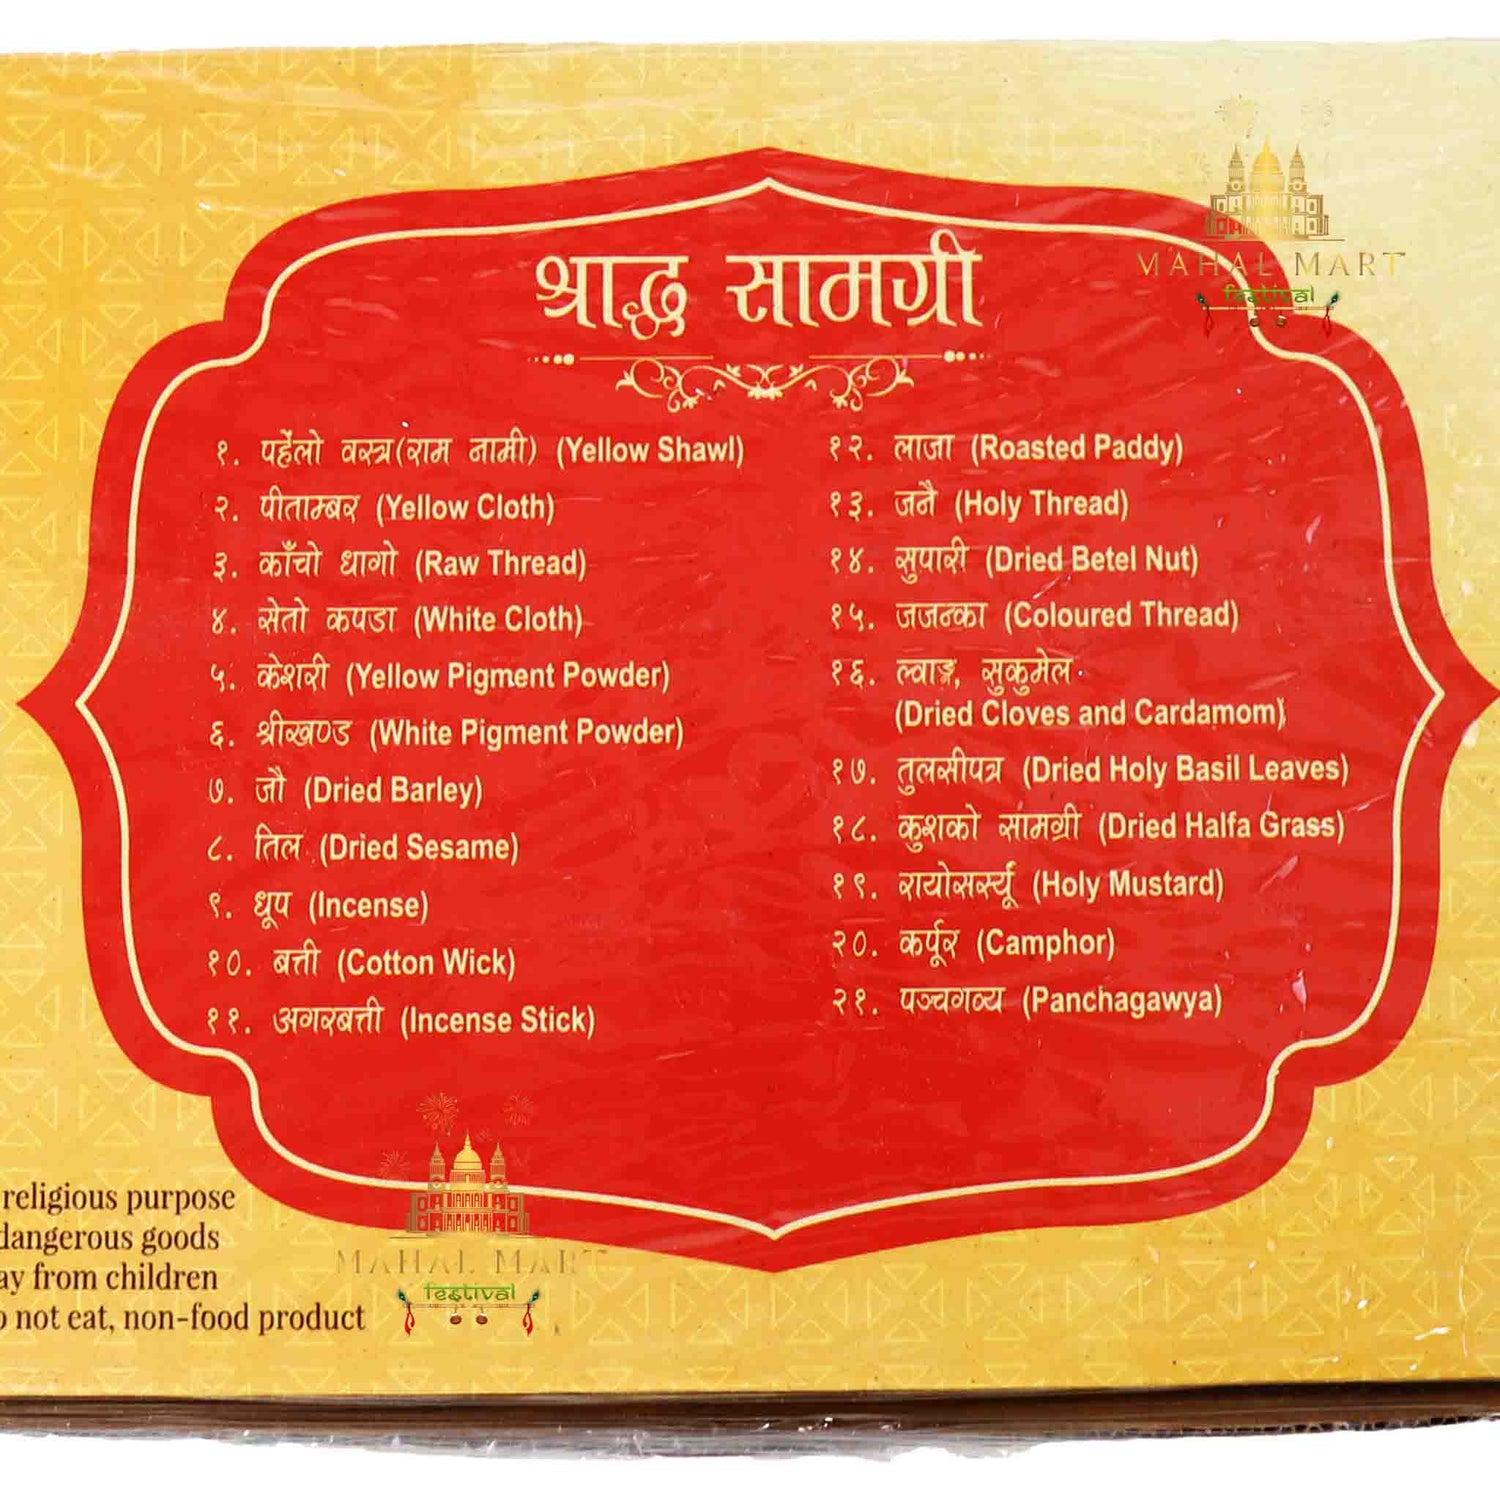 MAHAL MART
festival
श्राद्ध सामग्री
१. पहेंलो वस्त्र(राम नामी) (Yellow Shawl)
२. पीताम्बर (Yellow Cloth)
३. काँचो धागो (Raw Thread)
४. सेतो कपडा (White Cloth)
५. केशरी (Yellow Pigment Powder)
६. श्रीखण्ड (White Pigment Powder)
७. जौ (Dried Barley)
८. तिल (Dried Sesame)
९. धूप (Incense)
१०. बत्ती (Cotton Wick)
११. अगरबत्ती (Incense Stick)
१२. लाजा (Roasted Paddy)
१३. जनै (Holy Thread)
१४. सुपारी (Dried Betel Nut)
१५. जजन्का (Coloured Thread)
१६. ल्वाङ्ग, सुकुमेल
(Dried Cloves and Cardamom)
१७. तुलसीपत्र (Dried Holy Basil Leaves)
१८. कुशको सामग्री (Dried Halfa Grass)
१९. रायोसर्स्यूं (Holy Mustard)
२०. कर्पूर (Camphor)
२१. पञ्चगव्य (Panchagawya)
religious purpose
dangerous goods
from children
not eat, non-food product
MAHAL MART
festival